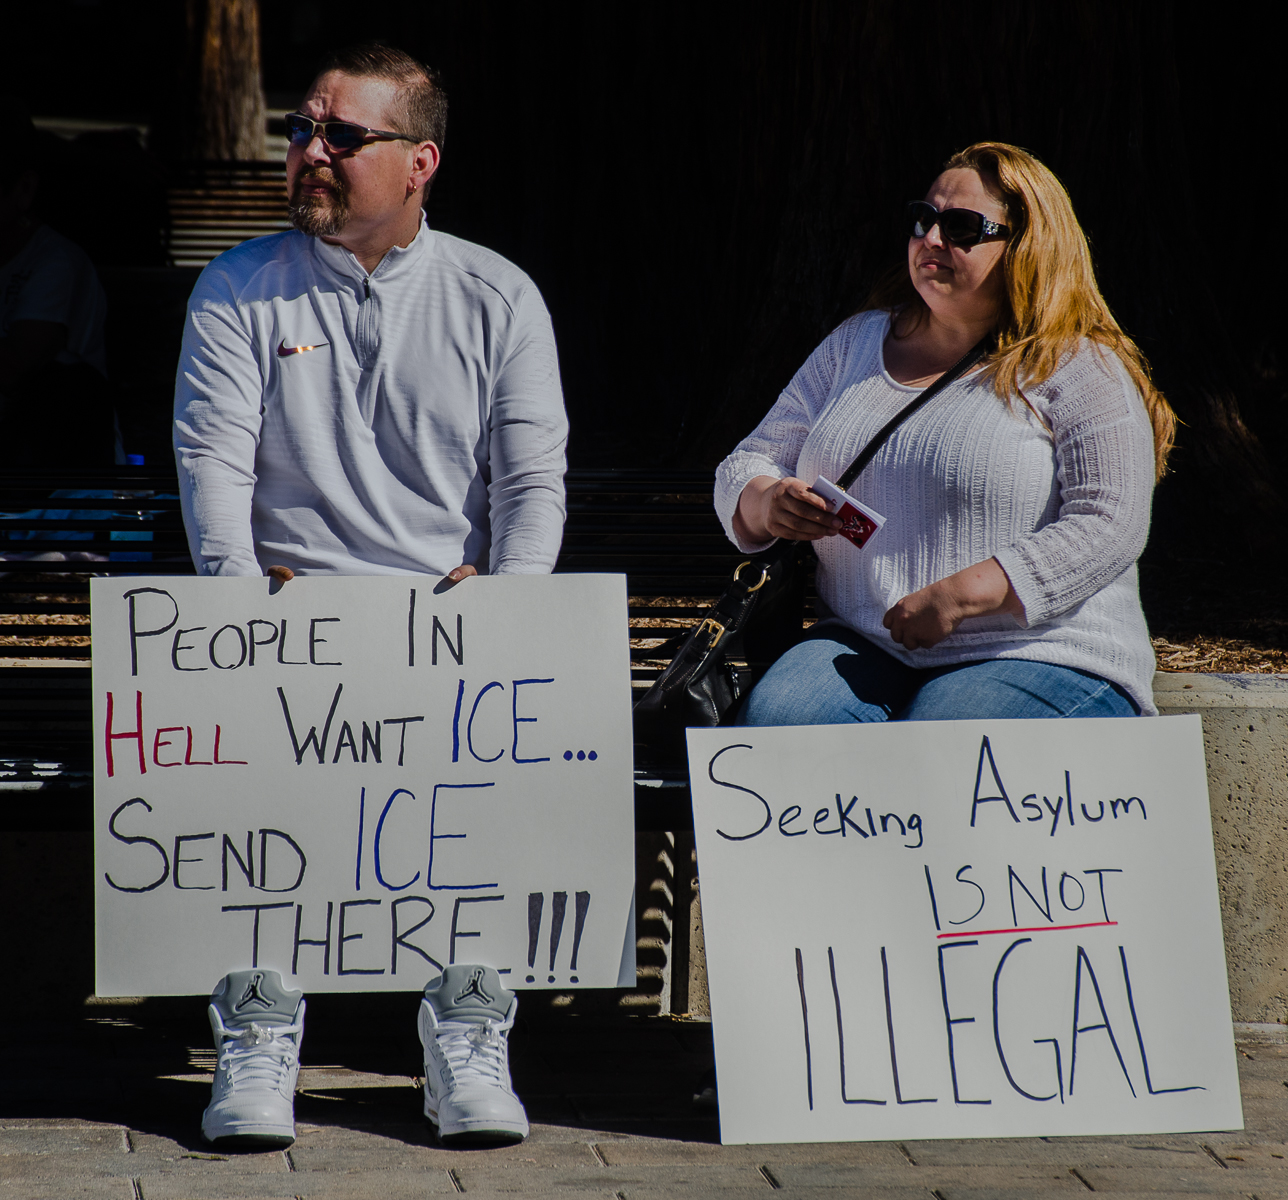 PEOPLE IN
HELL WANT ICE...
SEND ICE
THERE!!!
Seeking Asylum
IS NOT
ILLEGAL